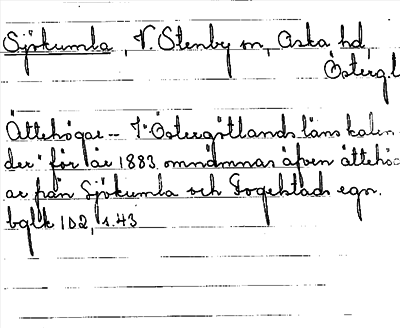 Sjökumla, V. Stenby sn, Aska hd,
Österg.l
Ättehögar -- I "Östergötlands läns kalen
der" för år 1883 omnämnas äfven ättehö-
ar från Sjökumla och Fogelstads egor.
bglk 102, s. 43